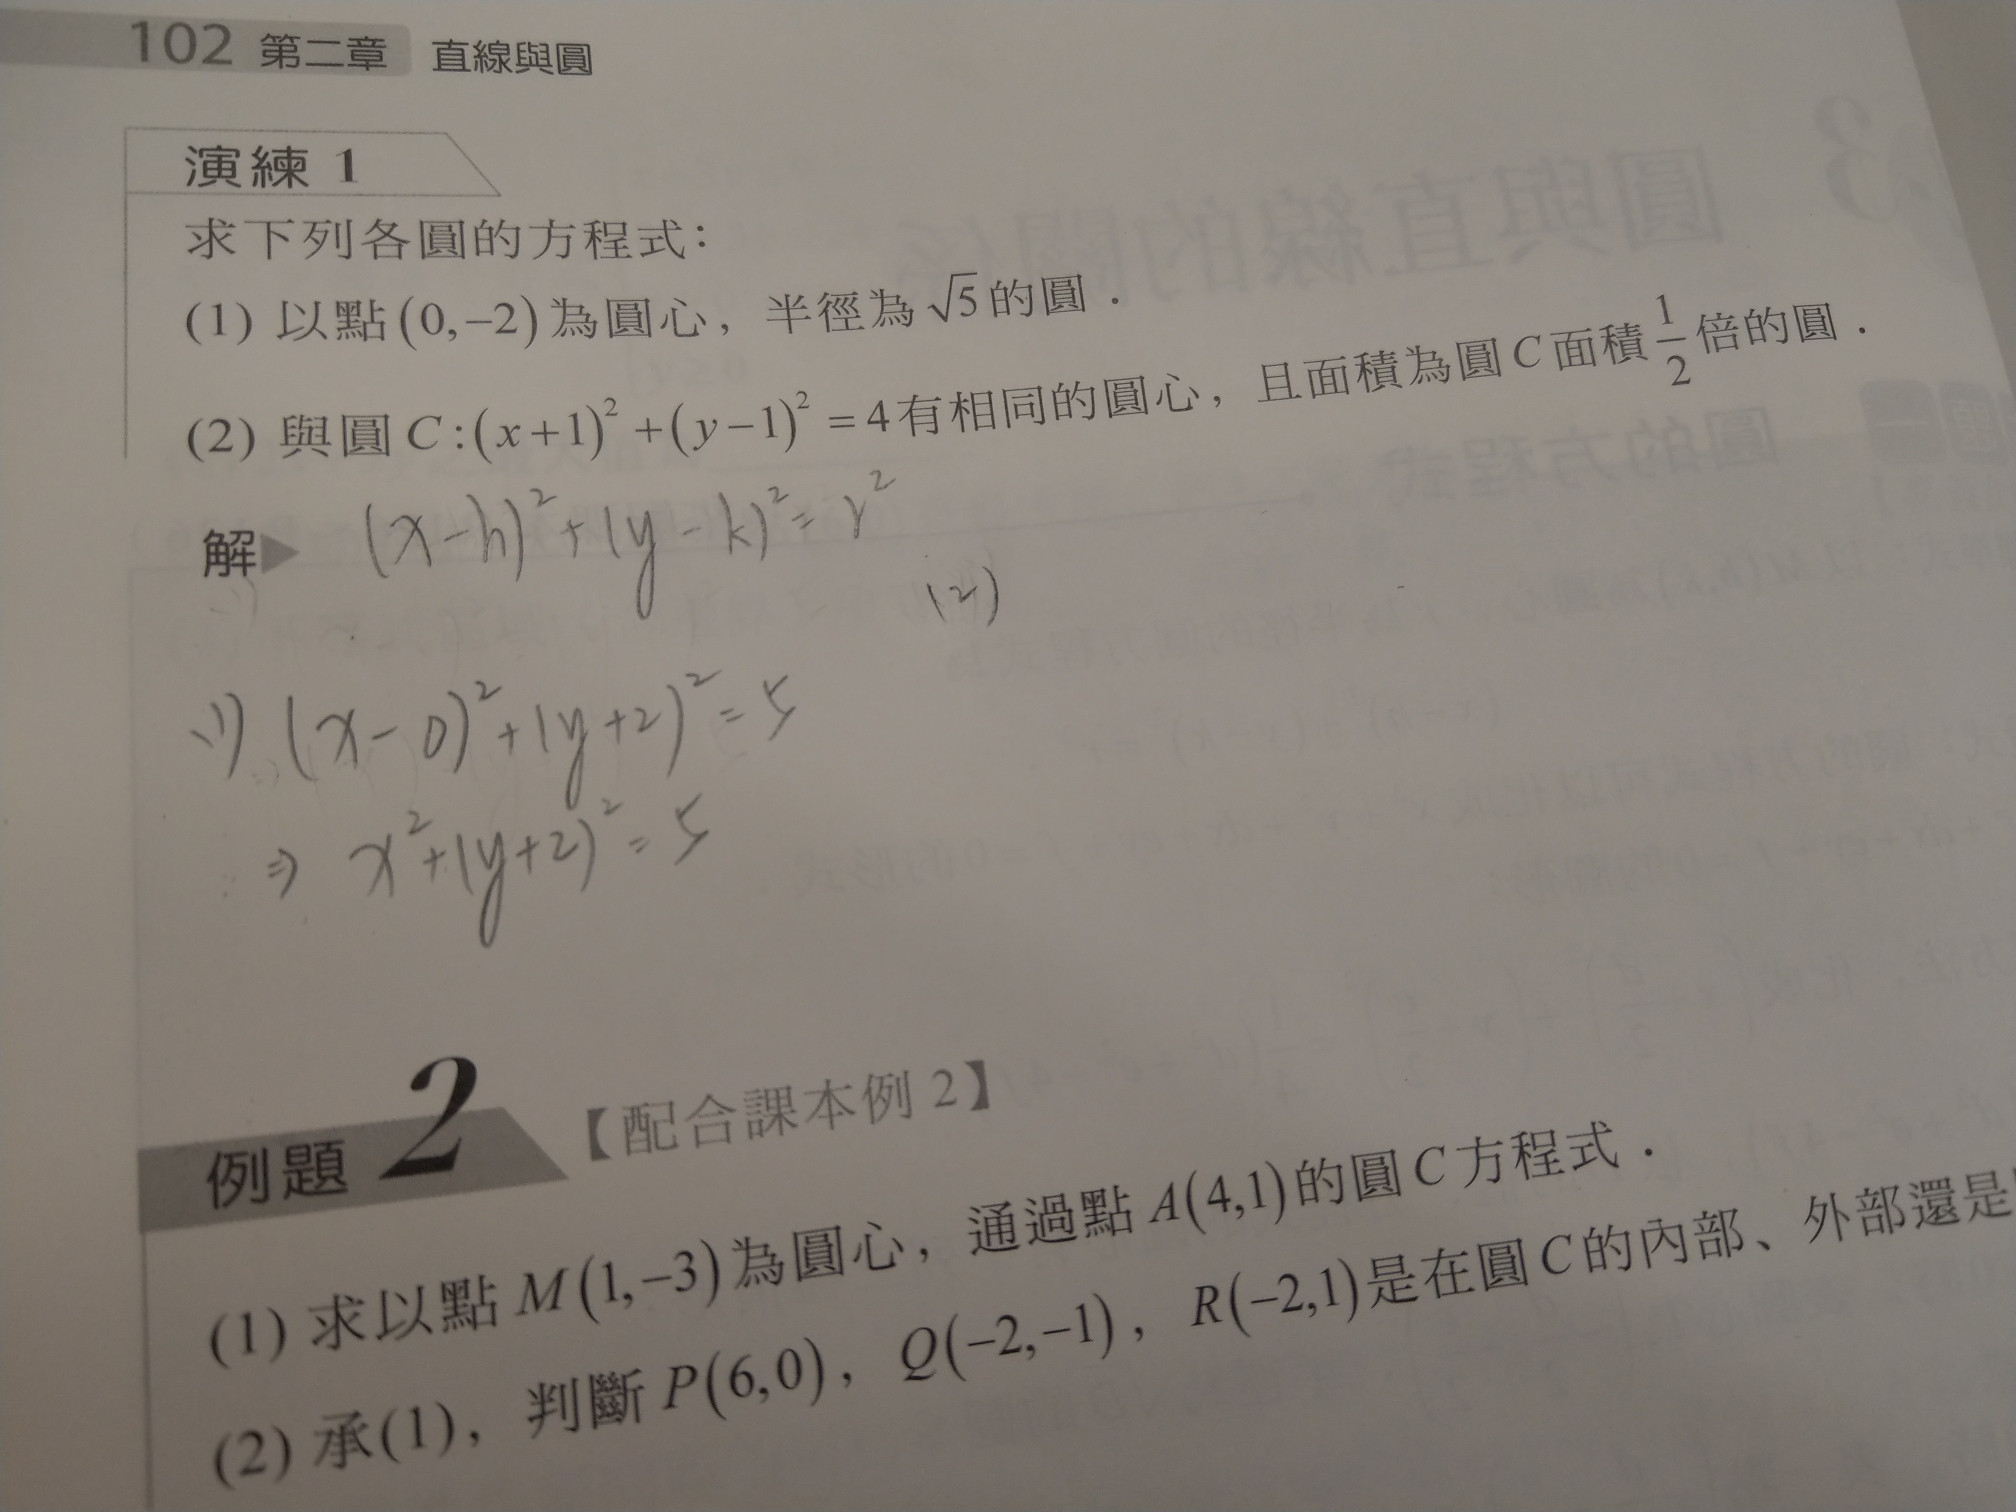 102 第二章 直線與圓
演練 1
求下列各圓的方程式：
(1) 以點(0,−2)為圓心，半徑為√5的圓．
(2) 與圓C:(x+1)²+(y−1)²=4有相同的圓心，且面積為圓C面積1/2倍的圓．
解▶ (x-h)²+(y-k)²=r²
(2)
(1) (x-0)²+(y+2)²=5
⇒ x²+(y+2)²=5
例題 2 【配合課本例 2】
(1) 求以點M(1,−3)為圓心，通過點A(4,1)的圓C方程式．
(2) 承(1)，判斷P(6,0)，Q(−2,−1)，R(−2,1)是在圓C的內部、外部還是